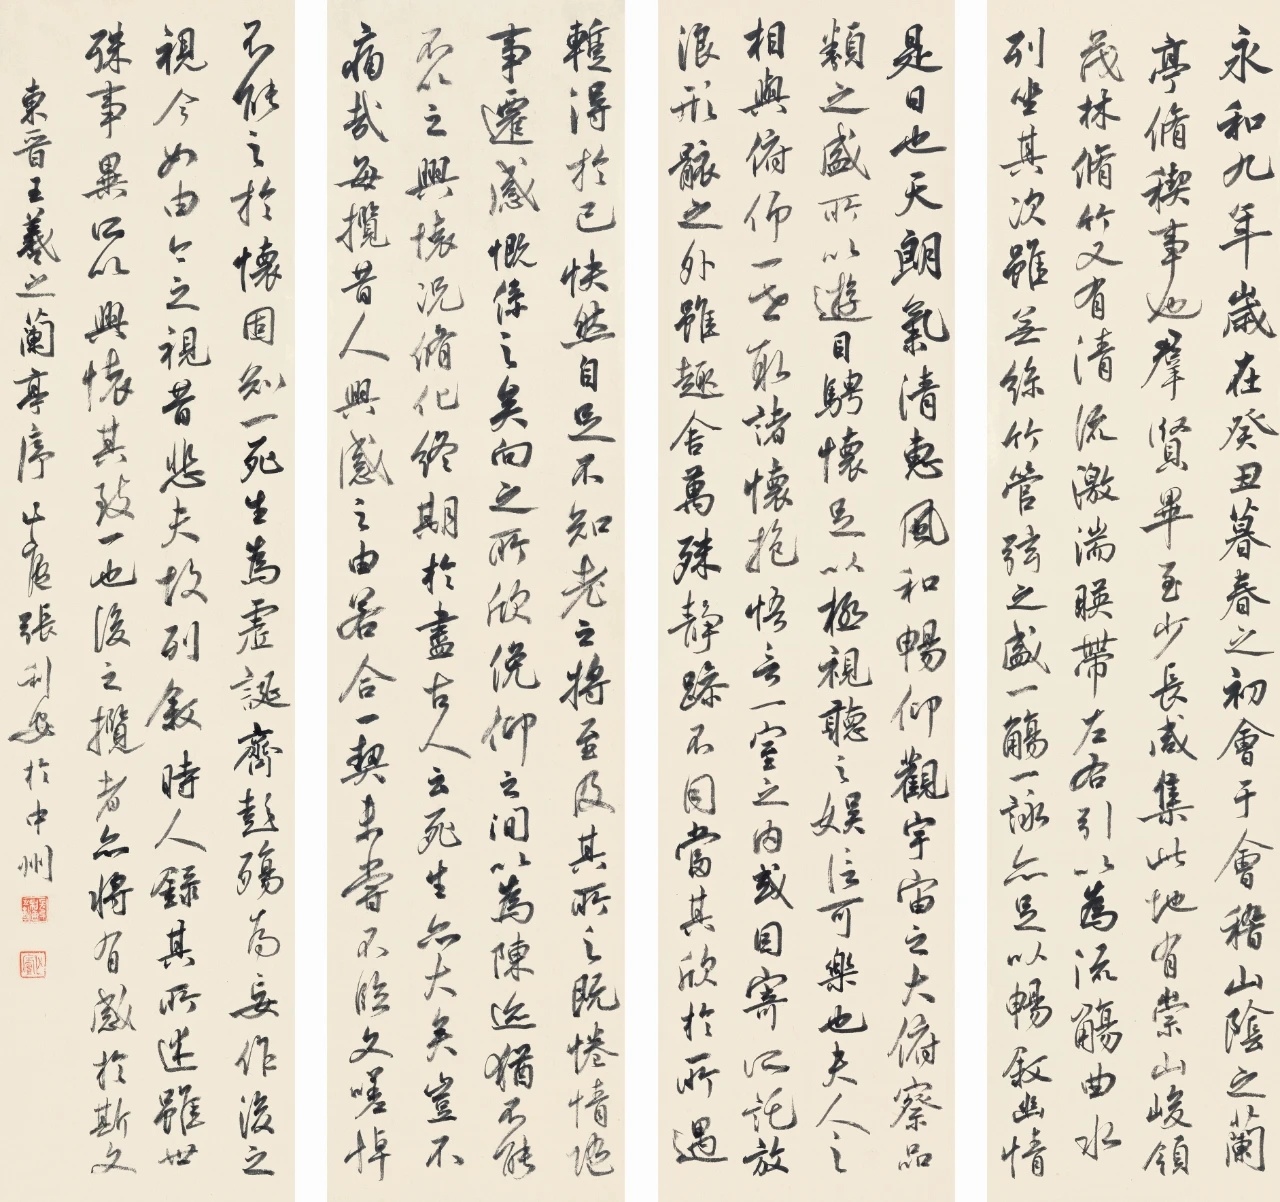 永和九年歲在癸丑暮春之初會于會稽山陰之蘭
亭脩稧事也羣賢畢至少長咸集此地有崇山峻領
茂林脩竹又有清流激湍暎帶左右引以為流觴曲水
列坐其次雖無絲竹管弦之盛一觴一詠亦足以暢敘幽情
是日也天朗氣清惠風和暢仰觀宇宙之大俯察品
類之盛所以遊目騁懷足以極視聽之娛信可樂也夫人之
相與俯仰一世取諸懷抱悟言一室之內或因寄所託放
浪形骸之外雖趣舍萬殊靜躁不同當其欣於所遇
蹔得於己怏然自足不知老之將至及其所之既惓情隨
事遷感慨係之矣向之所欣俛仰之間以為陳迹猶不能
不以之興懷況脩短終期於盡古人云死生亦大矣豈不
痛哉每攬昔人興感之由若合一契未嘗不臨文嗟悼
不能之於懷固知一死生為虛誕齊彭殤為妄作後之
視今如由今之視昔悲夫故列敘時人錄其所述雖世
殊事異所以興懷其致一也後之攬者亦將有感於斯文
東晉王羲之蘭亭序 張利安於中州